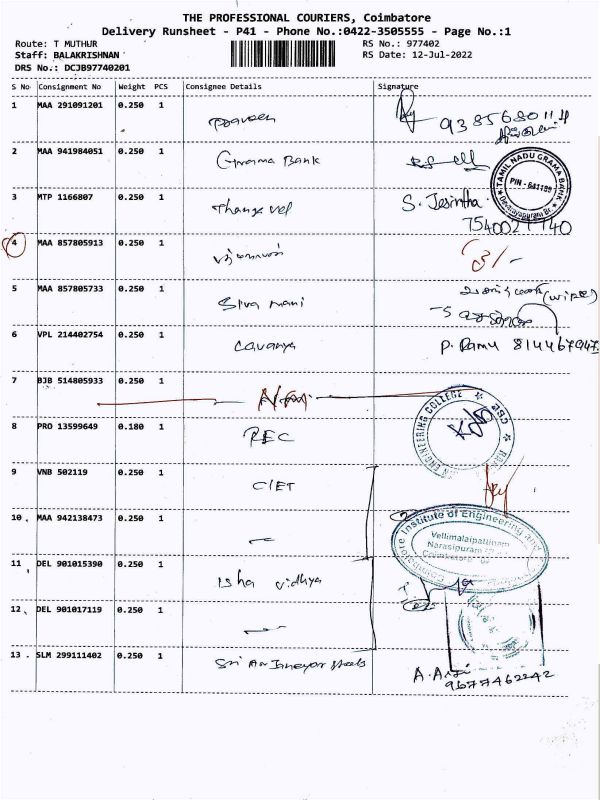 THE PROFESSIONAL COURIERS, Coimbatore
Delivery Runsheet - P41 - Phone No.:0422-3505555 - Page No.:1
Route: T MUTHUR RS No.: 977402
Staff: BALAKRISHNAN RS Date: 12-Jul-2022
DRS No.: DCJB97740201
S No Consignment No Weight PCS Consignee Details Signature
1 MAA 291091201 0.250 1 Praveen 9385680114
2 MAA 941984051 0.250 1 Grama Bank
TAMIL NADU GRAMA BANK
PIN - 641109
Devarayapuram Br.
3 MTP 1166807 0.250 1 Thangavel S. Jesintha
7540021740
4 MAA 857805913 0.250 1
5 MAA 857805733 0.250 1 Siva mani (wife)
6 VPL 214402754 0.250 1 Lavanya P. Ramu 814467947
7 BJB 514805933 0.250 1
8 PRO 13599649 0.180 1 REC
ENGINEERING COLLEGE
9 VNB 502119 0.250 1 CIET
10 MAA 942138473 0.250 1
Coimbatore Institute of Engineering and
Vellimalaipattinam
Narasipuram
Coimbatore
11 DEL 901015390 0.250 1 Isha vidhya
12 DEL 901017119 0.250 1
13 SLM 299111402 0.250 1 Sri
9677462242